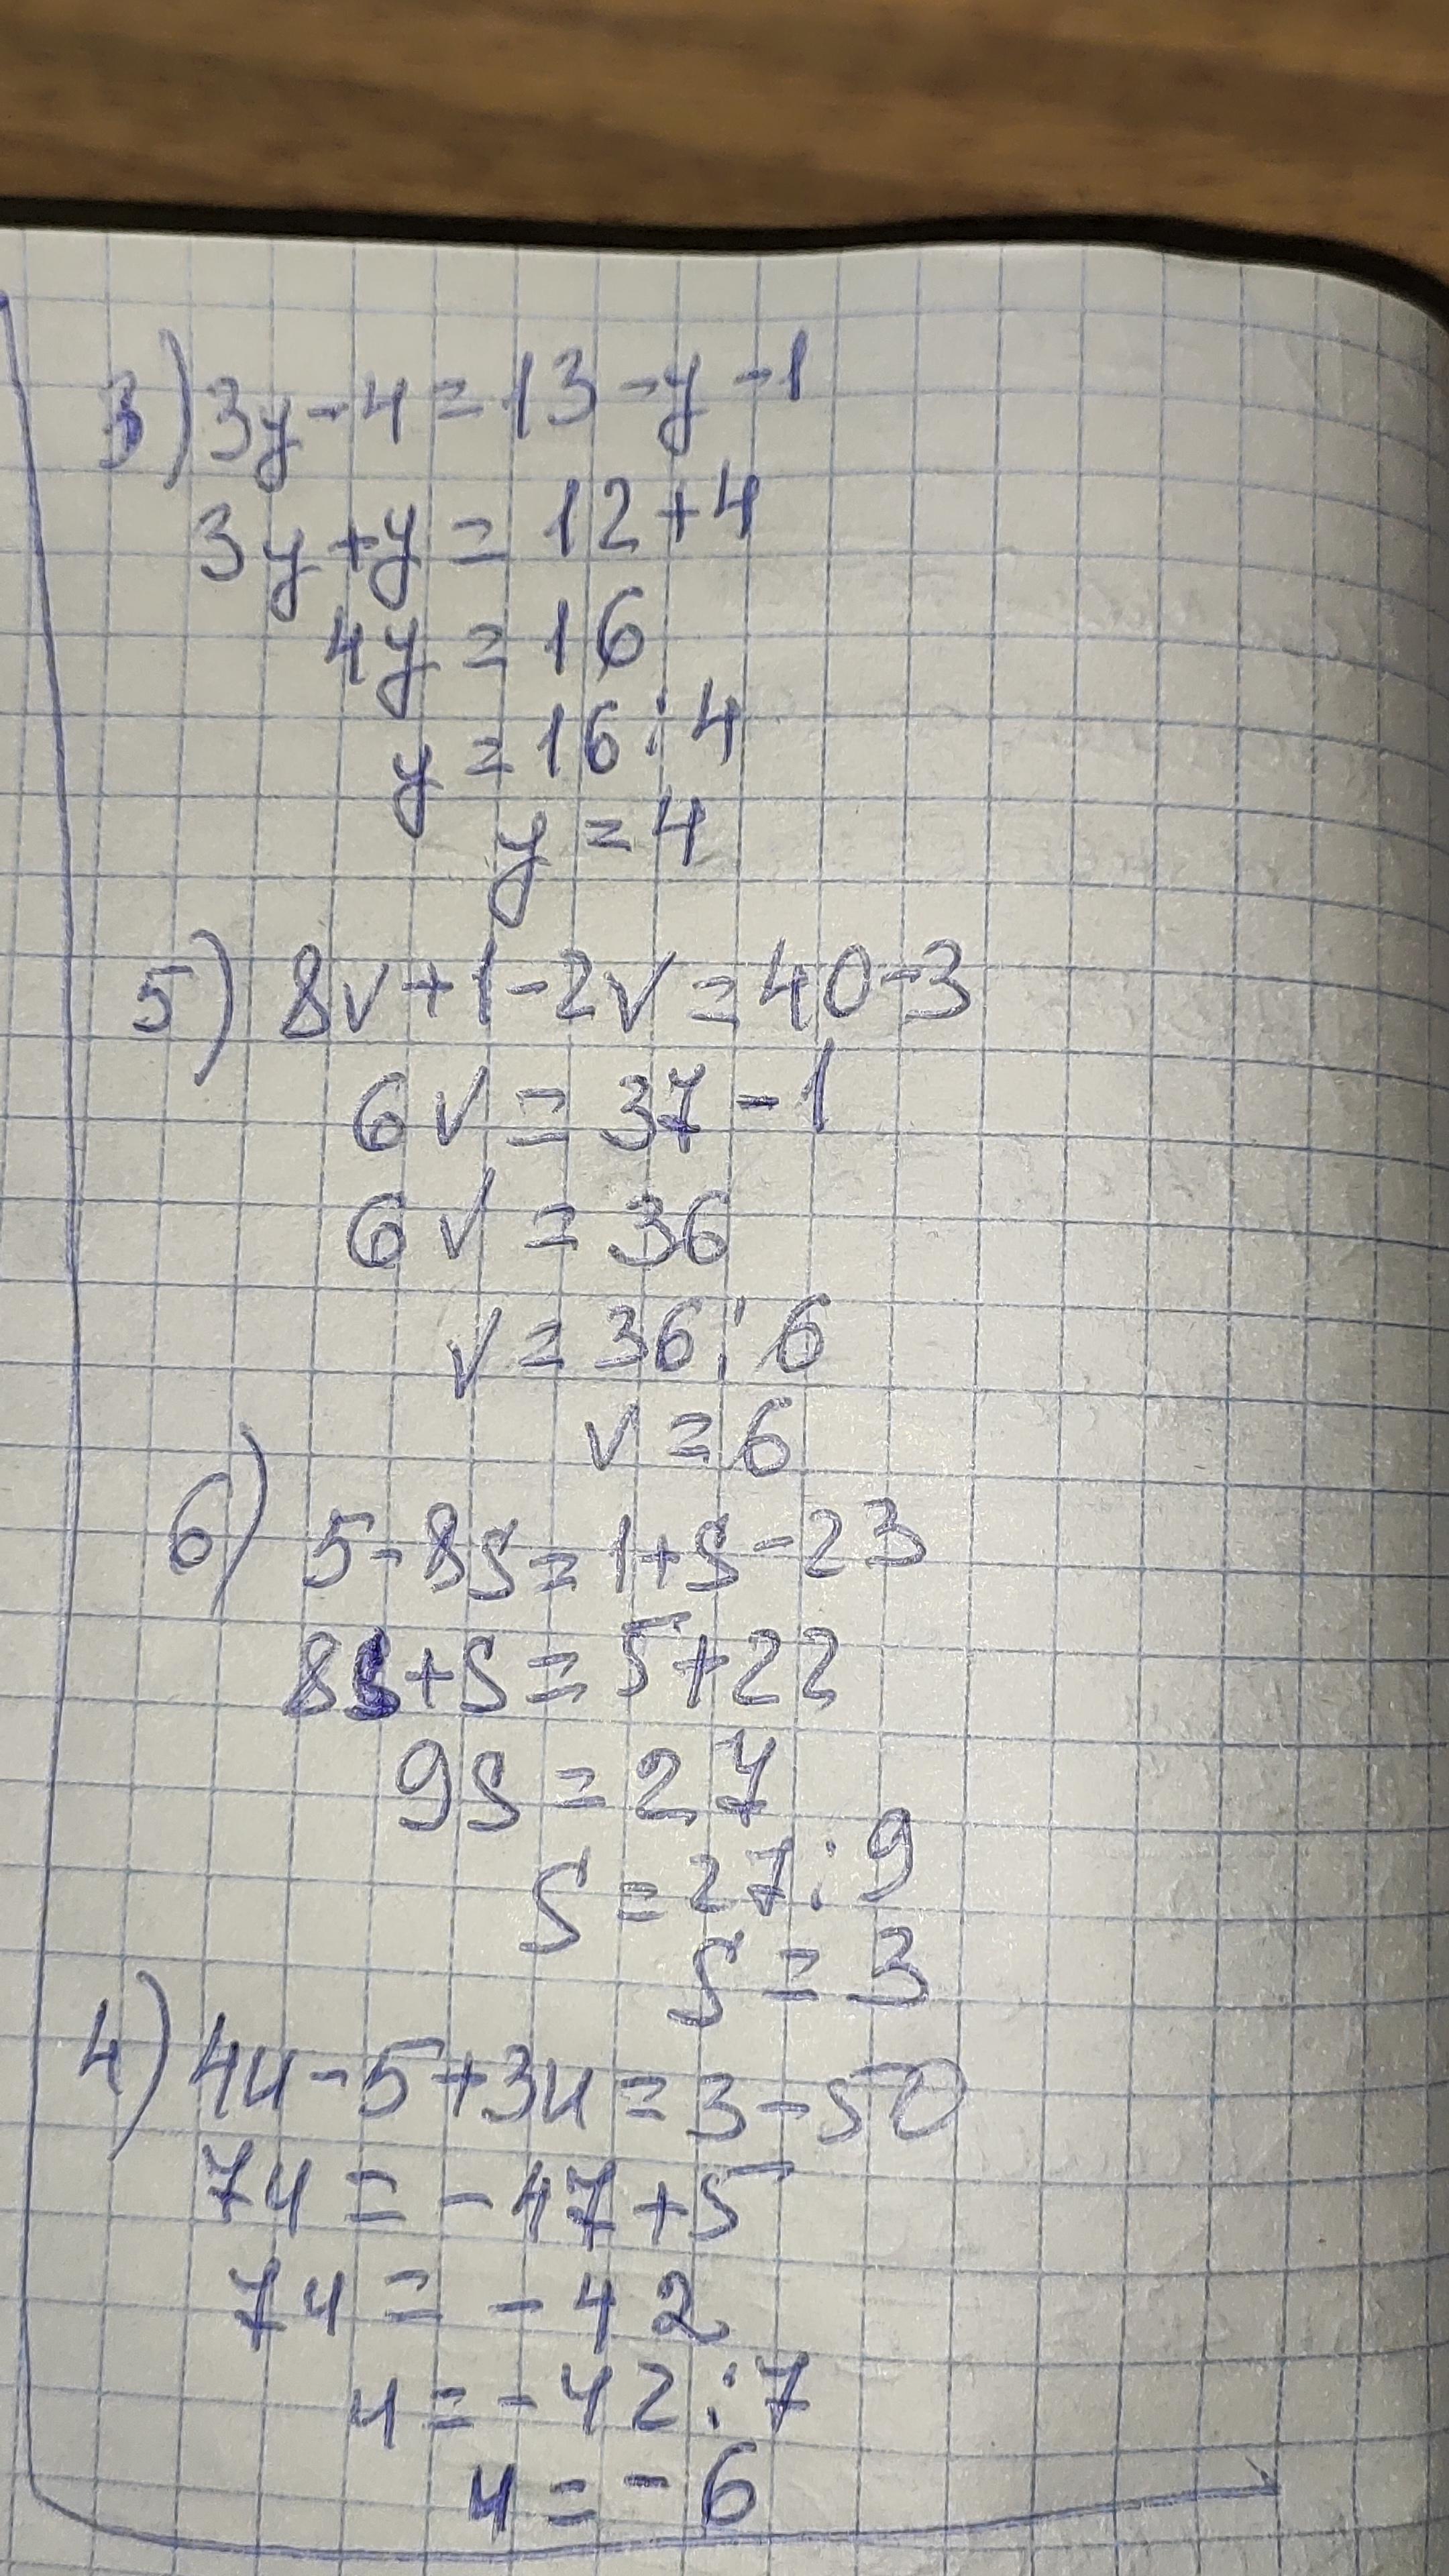 3) 3y-4=13-y-1
3y+y=12+4
4y=16
y=16:4
y=4
5) 8v+1-2v=40-3
6v=37-1
6v=36
v=36:6
v=6
6) 5-8s=1+s-23
8s+s=5+22
9s=27
s=27:9
s=3
4) 4u-5+3u=3-50
7u=-47+5
7u=-42
u=-42:7
u=-6